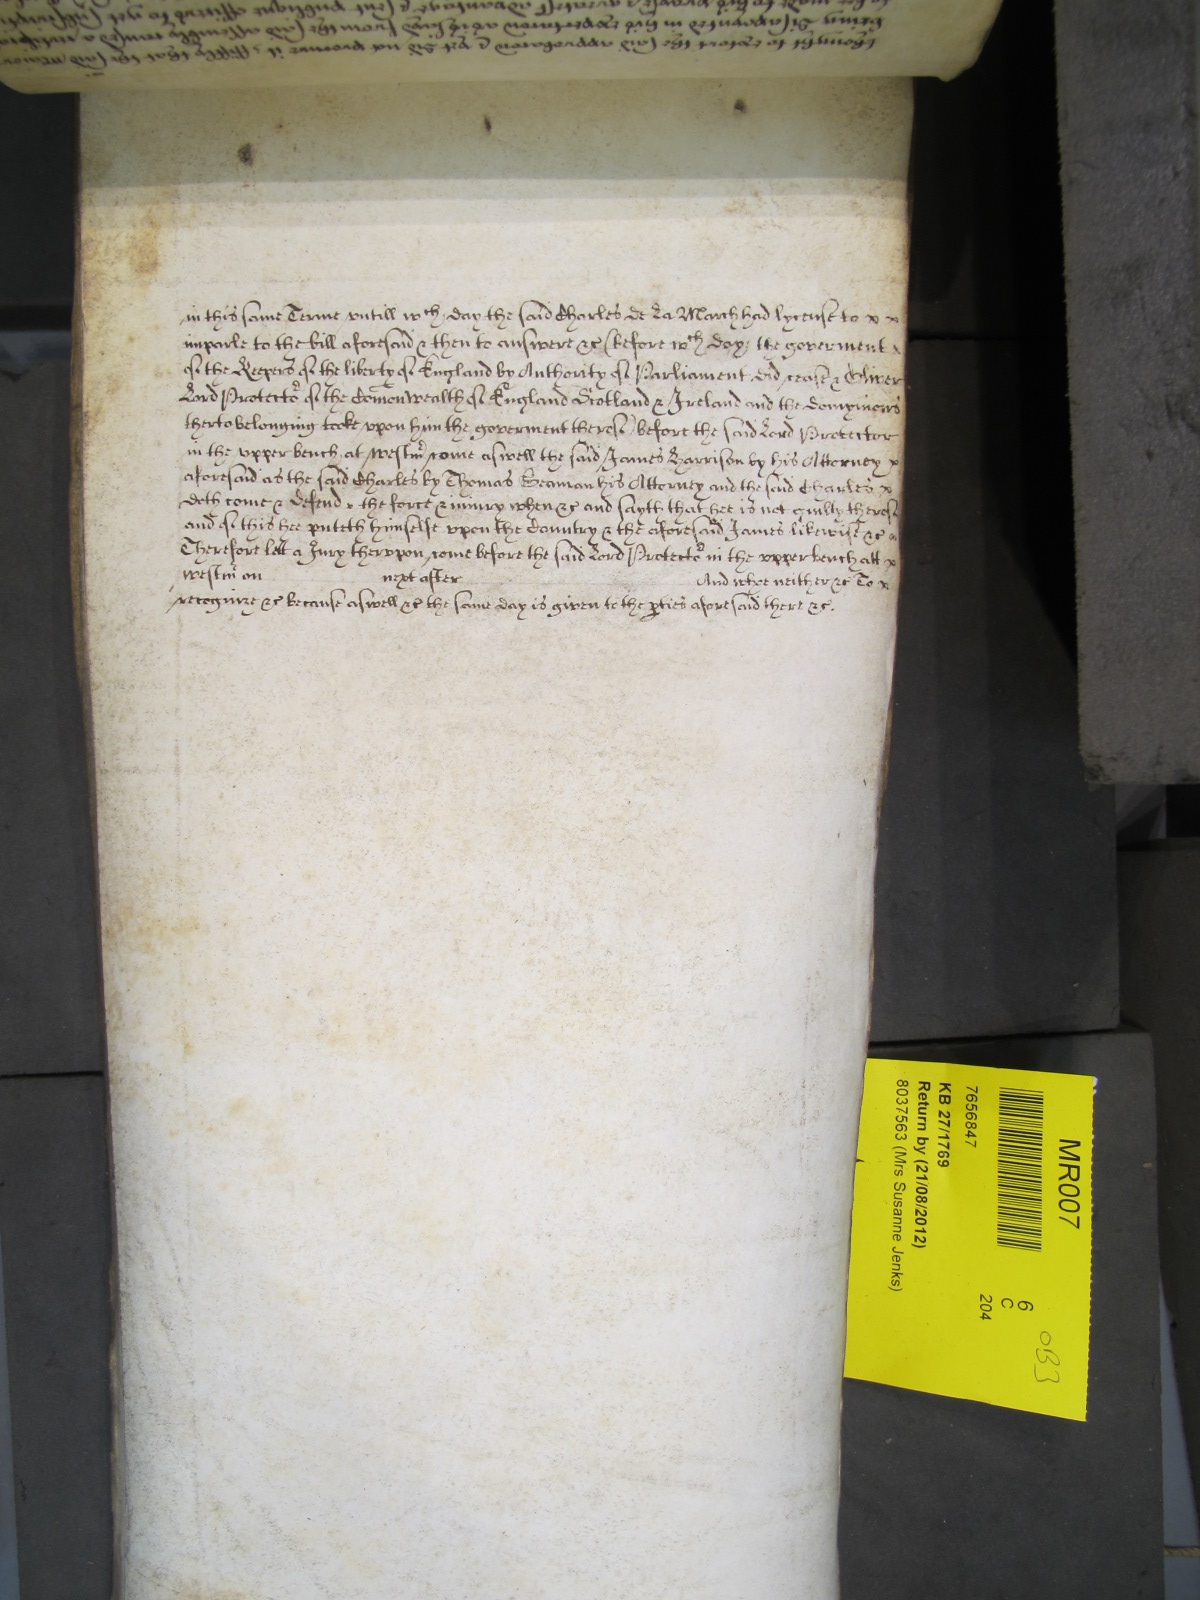 in this same Terme untill wch day the said Charles De La March had lycense to x x
imparle to the bill aforesaid & then to answere &c (before wch day, the goverment
of the Keepers of the liberty of England by Authority of Parliament did cease & Oliver
Lord Protector of the Comonwealth of England Scotland & Ireland and the Dominions
therto belonging tooke upon him the goverment thereof) before the said Lord Protector
in the upper bench at Westmr come aswell the said James Harrison by his Attorney x
aforesaid as the said Charles by Thomas Seaman his Attorney and the said Charles x
doth come & defend the force & iniury when &c and sayth that hee is not guilty thereof
and of this hee puteth himselfe upon the Country & the aforesaid James likewise &c
Therefore lett a Jury therupon come before the said Lord Protector in the upper bench att x
Westmr on next after And whoe neither &c To x
recognize &c because aswell &c the same day is given to the pties aforesaid there &c.
MR007
6
C
204
083
7656847
KB 27/1769
Return by (21/08/2012)
8037563 (Mrs Susanne Jenks)